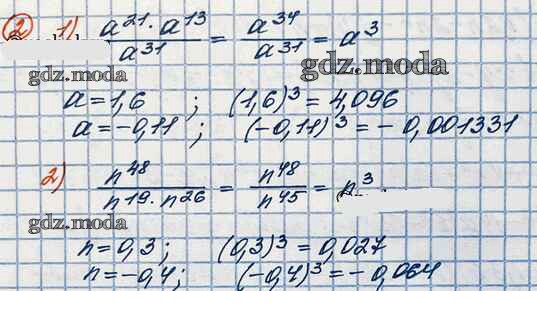 2) 1) a²¹·a¹³/a³¹ = a³⁴/a³¹ = a³
gdz.moda gdz.moda
a=1,6 ; (1,6)³ = 4,096
a=-0,11 ; (-0,11)³ = -0,001331
2) n⁴⁸/n¹⁹·n²⁶ = n⁴⁸/n⁴⁵ = n³
gdz.moda
n=0,3; (0,3)³ = 0,027
n=-0,4; (-0,4)³ = -0,064